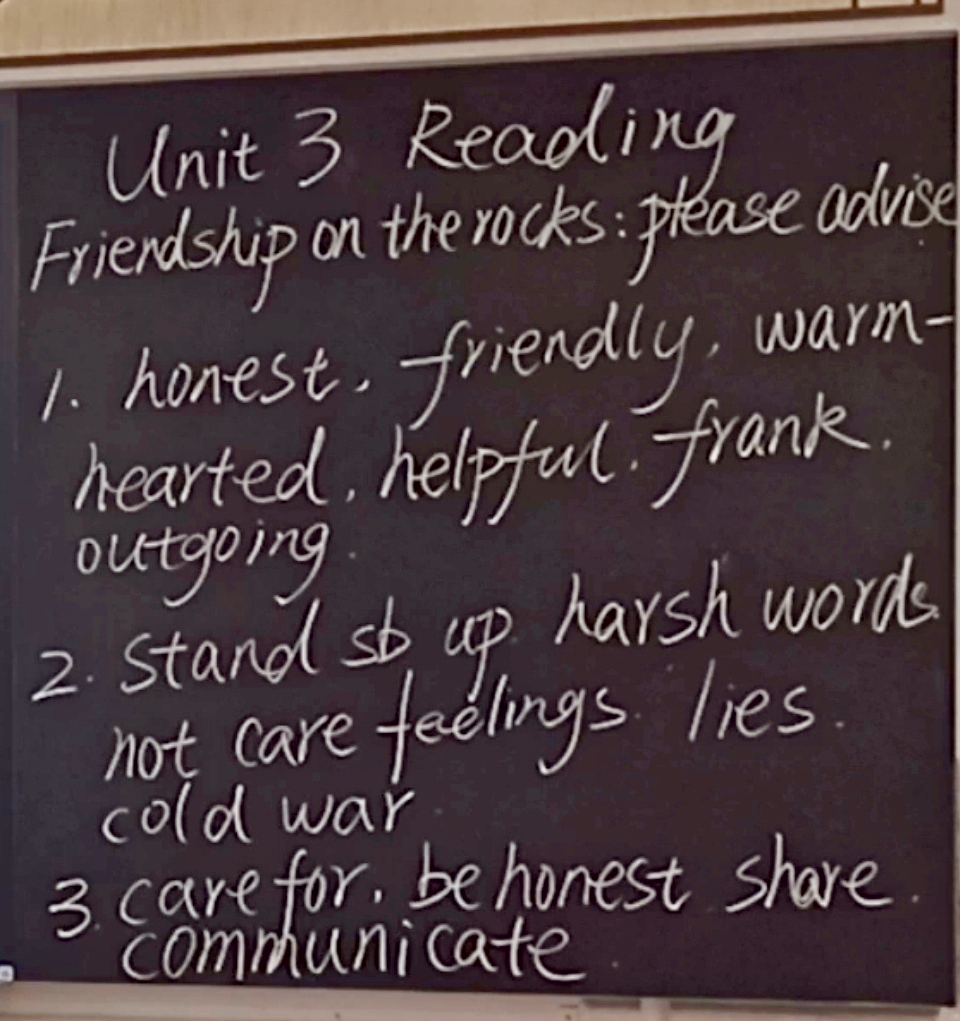 Unit 3 Reading
Friendship on the rocks: please advise
1. honest, friendly, warm-
hearted, helpful, frank.
outgoing.
2. Stand sb up. harsh words.
not care feelings. lies.
cold war.
3. care for, be honest share.
communicate.